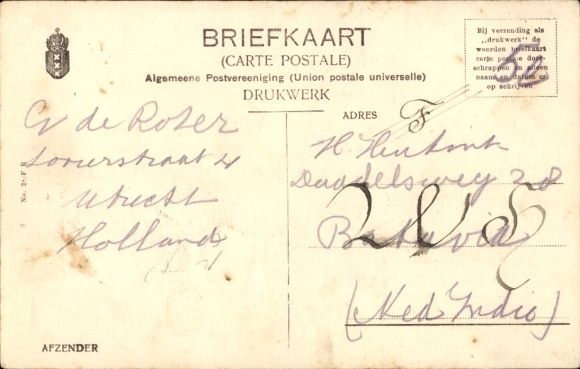 BRIEFKAART
(CARTE POSTALE)
Algemeene Postvereeniging (Union postale universelle)
DRUKWERK
Bij verzending als
„drukwerk" de
woorden briefkaart
carte postale door-
schrappen en alleen
naam en datum er
op schrijven
52
ADRES
F
G de Roter
straat 4
Utrecht
Holland
H.
Daendelsweg 28
Batavia
(Ned Indio)
No. 2 F. R
AFZENDER